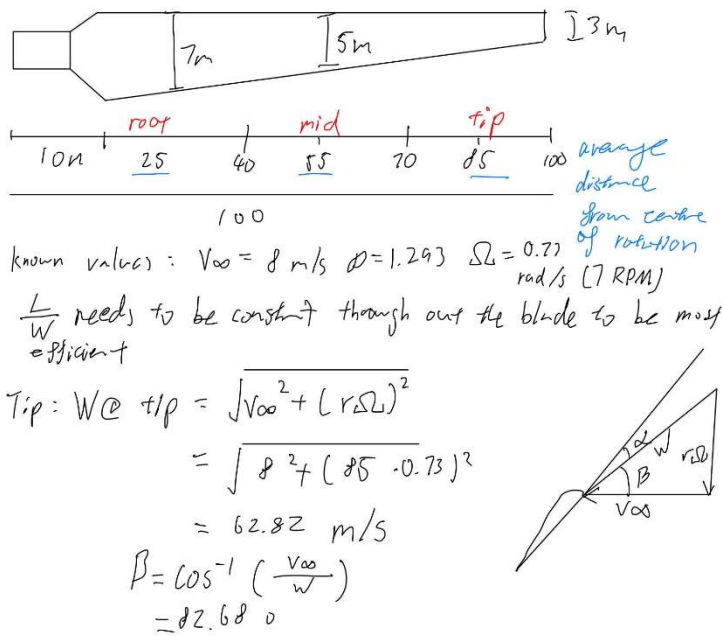 7m
5m
3m
root mid tip
10m 25 40 55 70 85 100
average
distance
from centre
of rotation
100
known values: V∞ = 8 m/s ρ=1.293 Ω = 0.73
rad/s (7 RPM)
L/W needs to be constnt through out the blade to be most
efficient
Tip: W@ tip = √(V∞² + (rΩ)²)
= √(8² + (85 · 0.73)²)
= 62.82 m/s
β = cos⁻¹ (V∞/W)
= 82.68 °
α
W
β
rΩ
V∞